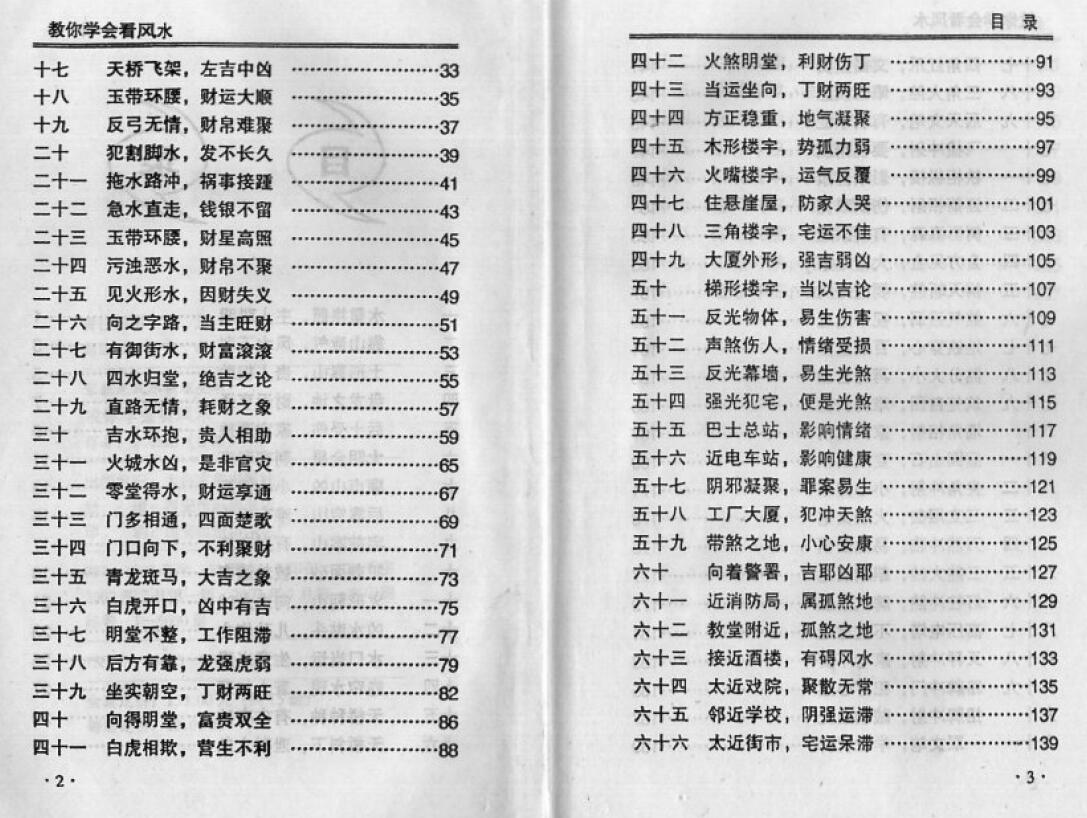 教你学会看风水
十七 天桥飞架，左吉中凶 ………………33
十八 玉带环腰，财运大顺 ………………35
十九 反弓无情，财帛难聚 ………………37
二十 犯割脚水，发不长久 ………………39
二十一 拖水路冲，祸事接踵 ………………41
二十二 急水直走，钱银不留 ………………43
二十三 玉带环腰，财星高照 ………………45
二十四 污浊恶水，财帛不聚 ………………47
二十五 见火形水，因财失义 ………………49
二十六 向之字路，当主旺财 ………………51
二十七 有御街水，财富滚滚 ………………53
二十八 四水归堂，绝吉之论 ………………55
二十九 直路无情，耗财之象 ………………57
三十 吉水环抱，贵人相助 ………………59
三十一 火城水凶，是非官灾 ………………65
三十二 零堂得水，财运享通 ………………67
三十三 门多相通，四面楚歌 ………………69
三十四 门口向下，不利聚财 ………………71
三十五 青龙斑马，大吉之象 ………………73
三十六 白虎开口，凶中有吉 ………………75
三十七 明堂不整，工作阻滞 ………………77
三十八 后方有靠，龙强虎弱 ………………79
三十九 坐实朝空，丁财两旺 ………………82
四十 向得明堂，富贵双全 ………………86
四十一 白虎相欺，营生不利 ………………88
·2·
目 录
四十二 火煞明堂，利财伤丁 ………………91
四十三 当运坐向，丁财两旺 ………………93
四十四 方正稳重，地气凝聚 ………………95
四十五 木形楼宇，势孤力弱 ………………97
四十六 火嘴楼宇，运气反覆 ………………99
四十七 住悬崖屋，防家人哭 ………………101
四十八 三角楼宇，宅运不佳 ………………103
四十九 大厦外形，强吉弱凶 ………………105
五十 梯形楼宇，当以吉论 ………………107
五十一 反光物体，易生伤害 ………………109
五十二 声煞伤人，情绪受损 ………………111
五十三 反光幕墙，易生光煞 ………………113
五十四 强光犯宅，便是光煞 ………………115
五十五 巴士总站，影响情绪 ………………117
五十六 近电车站，影响健康 ………………119
五十七 阴邪凝聚，罪案易生 ………………121
五十八 工厂大厦，犯冲天煞 ………………123
五十九 带煞之地，小心安康 ………………125
六十 向着警署，吉耶凶耶 ………………127
六十一 近消防局，属孤煞地 ………………129
六十二 教堂附近，孤煞之地 ………………131
六十三 接近酒楼，有碍风水 ………………133
六十四 太近戏院，聚散无常 ………………135
六十五 邻近学校，阴强运滞 ………………137
六十六 太近街市，宅运呆滞 ………………139
·3·